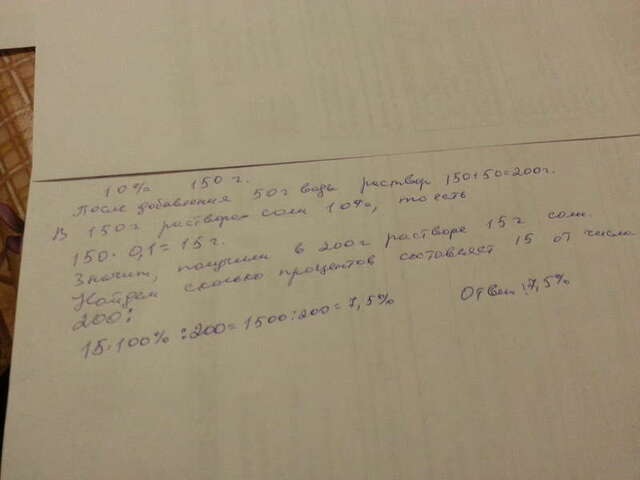 10% 150 г.
После добавления 50 г воды раствор 150+50=200г.
В 150 г раствора соли 10%, то есть
150 · 0,1 = 15 г.
Значит, получили в 200 г растворе 15 г соли.
Найдем сколько процентов составляет 15 от числа
200:
15·100% :200= 1500:200= 7,5% Ответ: 7,5%